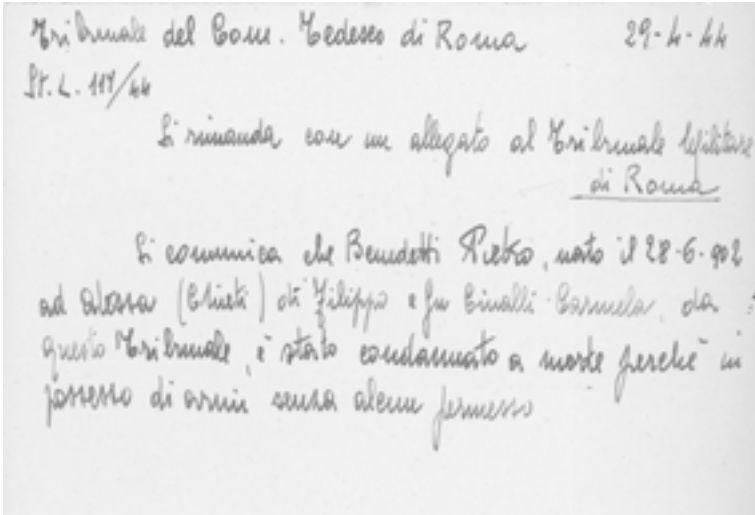 Tribunale del Com. Tedesco di Roma 29-4-44
St. L. 117/44
Si rimanda con un allegato al Tribunale Militare
di Roma
Si comunica che Benedetti Pietro, nato il 28-6-902
ad Atessa (Chieti) di Filippo e fu Cinalli Carmela, da
questo Tribunale, è stato condannato a morte perchè in
possesso di armi senza alcun permesso